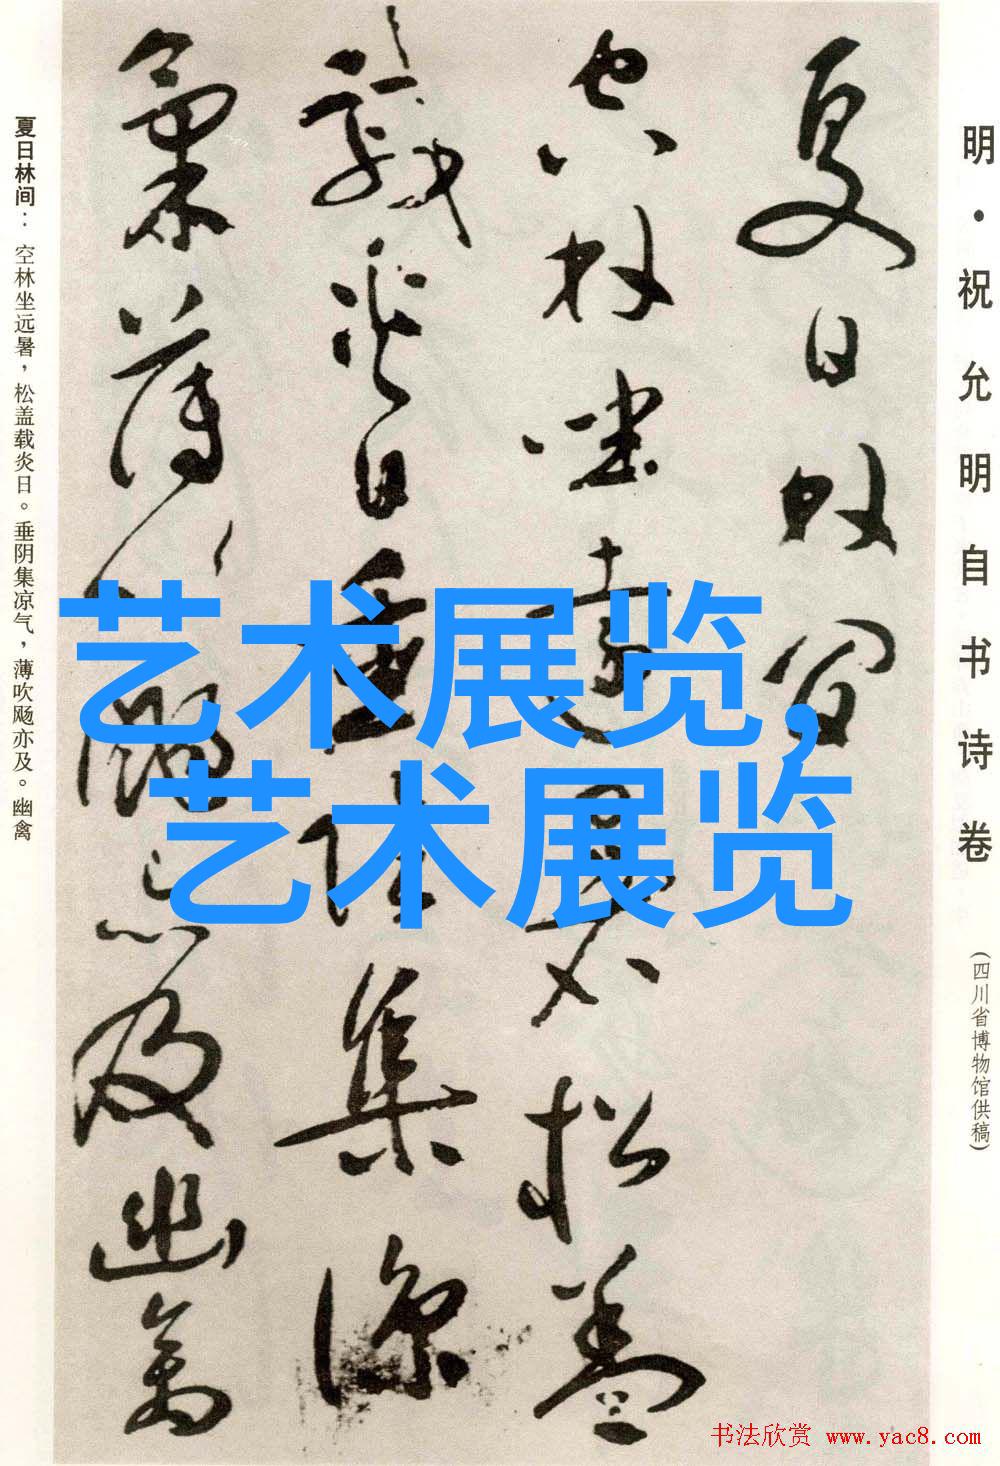 明·祝允明自书诗卷
(四川省博物馆供稿)
夏日林间
空林坐远暑松盖
载炎日垂阴集凉
气薄吹飏亦及幽禽
夏日林间：空林坐远暑，松盖载炎日。垂阴集凉气，薄吹飏亦及。幽禽
艺术展览，
艺术展览
书法欣赏 www.yac8.com